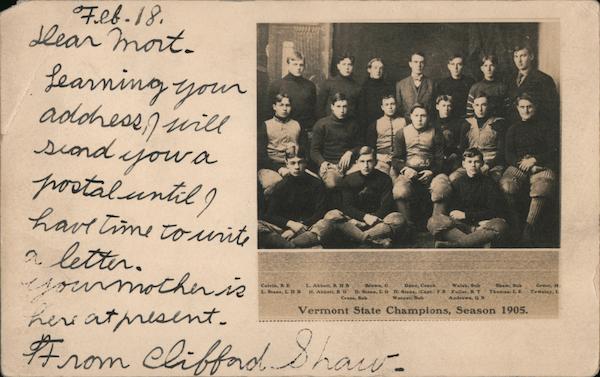 Feb. 18.
Dear Mort.
Learning your
address, I will
send you a
postal until I
have time to write
a letter.
Your mother is
here at present.
From Clifford Shaw.
Colvin, R E L. Abbott, R H B Brown, C Dane, Coach Walsh, Sub Shaw, Sub
L. Stone, L H B H. Abbott, R G D. Stone, L G H. Stone, (Capt.) F B Fuller, R T Thomas, L E
Cross, Sub Warner, Sub Andrews, Q B
Vermont State Champions, Season 1905.